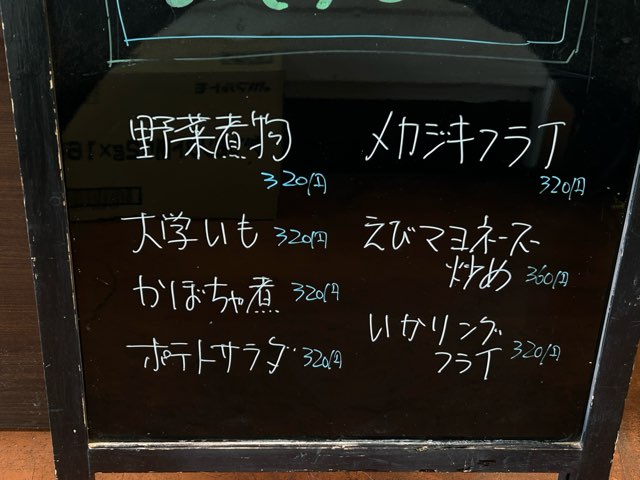 野菜煮物
320円
大学いも 320円
かぼちゃ煮 320円
ポテトサラダ 320円
メカジキフライ
320円
えびマヨネーズー
炒め 360円
いかリング
フライ 320円